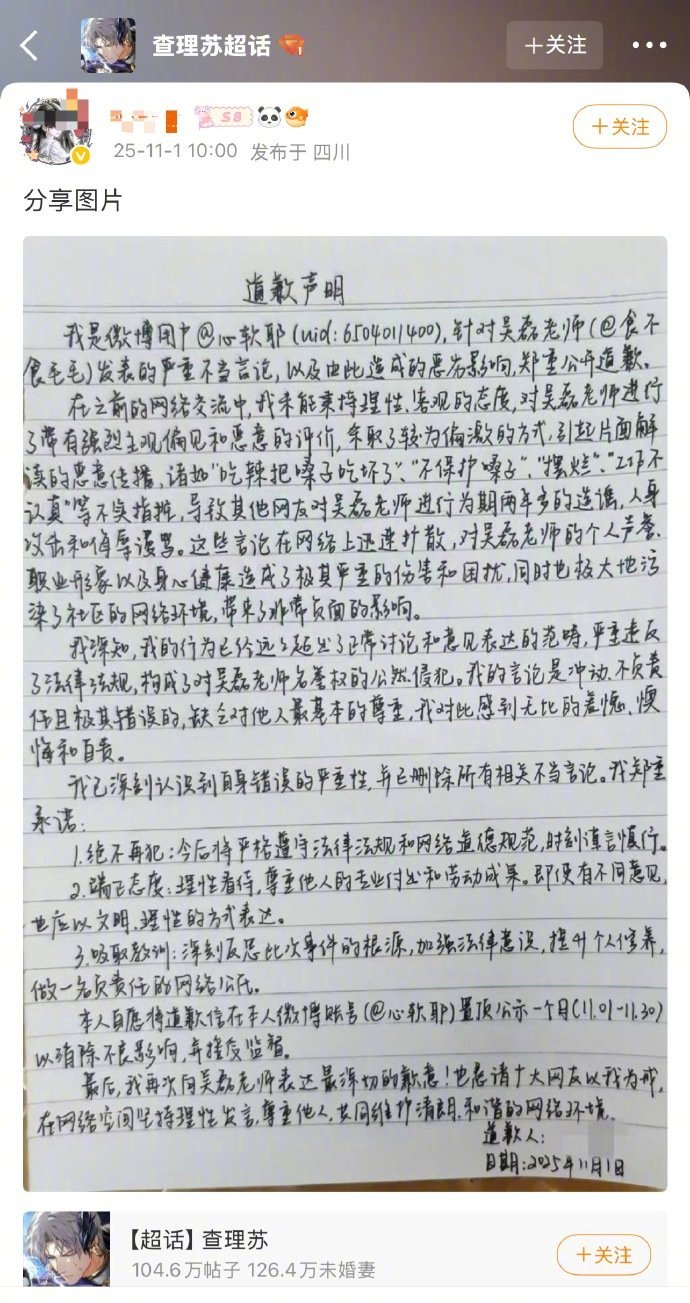 查理苏超话
+关注
S8
+关注
25-11-1 10:00 发布于 四川
分享图片
道歉声明
我是微博用户@心软耶(uid:6504011400),针对吴磊老师(@食不
食毛毛)发表的严重不当言论,以及由此造成的恶劣影响,郑重公开道歉。
在之前的网络交流中,我未能秉持理性、客观的态度,对吴磊老师进行
了带有强烈主观偏见和恶意的评价,采取了较为偏激的方式,引起片面解
读的恶意传播,诸如“吃辣把嗓子吃坏了”、“不保护嗓子”、“摆烂”、“工作不
认真”等不实指摘,导致其他网友对吴磊老师进行为期两年多的造谣,人身
攻击和侮辱谩骂。这些言论在网络上迅速扩散,对吴磊老师的个人声誉、
职业形象以及身心健康造成了极其严重的伤害和困扰,同时也极大地污
染了社区的网络环境,带来了非常负面的影响。
我深知,我的行为已经远远超出了正常讨论和意见表达的范畴,严重违反
了法律法规,构成了对吴磊老师名誉权的公然侵犯。我的言论是冲动、不负责
任且极其错误的,缺乏对他人最基本的尊重,我对此感到无比的羞愧、懊
悔和自责。
我已深刻认识到自身错误的严重性,并已删除所有相关不当言论。我郑重
承诺:
1.绝不再犯:今后将严格遵守法律法规和网络道德规范,时刻谨言慎行。
2.端正态度:理性看待,尊重他人的专业付出和劳动成果。即便有不同意见,
也应以文明、理性的方式表达。
3.吸取教训:深刻反思此次事件的根源,加强法律意识,提升个人修养,
做一名负责任的网络公民。
本人自愿将道歉信在本人微博账号(@心软耶)置顶公示一个月(11.01-11.30)
以消除不良影响,并接受监督。
最后,我再次向吴磊老师表达最深切的歉意!也恳请广大网友以我为戒,
在网络空间坚持理性发言,尊重他人,共同维护清朗、和谐的网络环境。
道歉人:
日期:2025年11月1日
【超话】查理苏
104.6万帖子 126.4万未婚妻
+关注